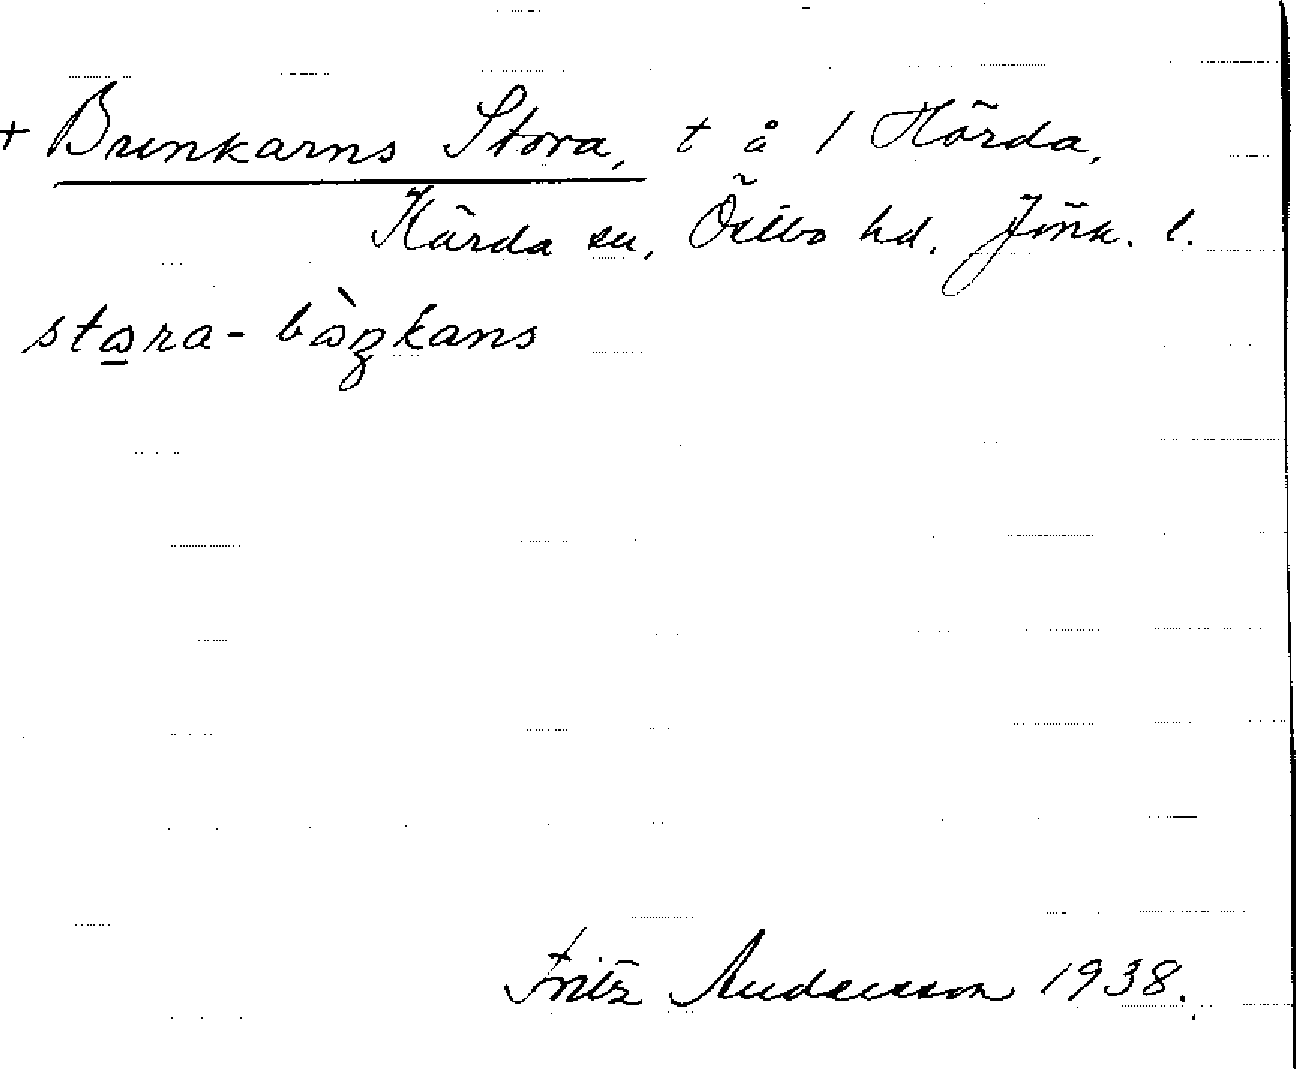 + Brunkarns Stora, t å 1 Hörda,
Kärda sn, Östbo hd. Jönk. l.
stora-
Fritz Andersson 1938.